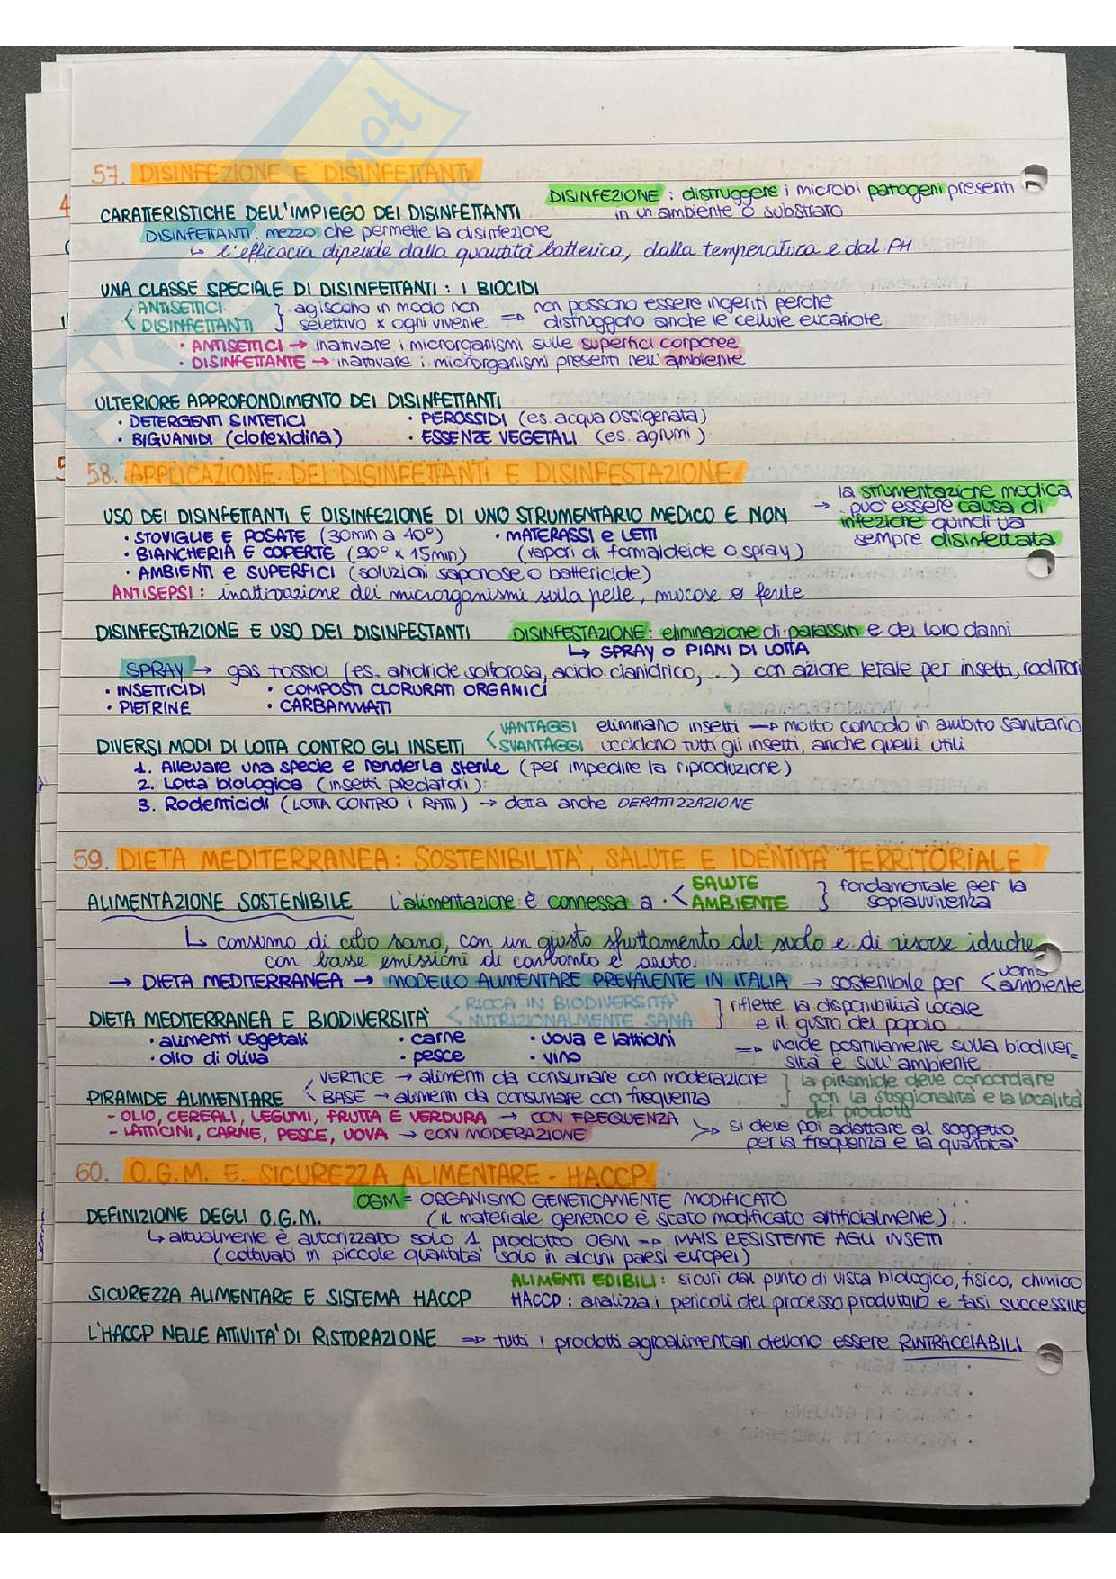 57. DISINFEZIONE E DISINFETTANTI
DISINFEZIONE : distruggere i microbi patogeni presenti
in un ambiente o substrato
CARATTERISTICHE DELL'IMPIEGO DEI DISINFETTANTI
DISINFETTANTI: mezzo che permette la disinfezione
↳ l'efficacia dipende dalla quantità batterica, dalla temperatura e dal PH
UNA CLASSE SPECIALE DI DISINFETTANTI : I BIOCIDI
ANTISETTICI
DISINFETTANTI
agiscono in modo non
selettivo x ogni vivente
⇒ non possono essere ingeriti perché
distruggono anche le cellule eucariote
• ANTISETTICI → inattivare i microrganismi sulle superfici corporee
• DISINFETTANTE → inattivare i microrganismi presenti nell'ambiente
ULTERIORE APPROFONDIMENTO DEI DISINFETTANTI
• DETERGENTI SINTETICI • PEROSSIDI (es. acqua ossigenata)
• BIGUANIDI (clorexidina) • ESSENZE VEGETALI (es. agrumi)
58. APPLICAZIONE DEI DISINFETTANTI E DISINFESTAZIONE
USO DEI DISINFETTANTI E DISINFEZIONE DI UNO STRUMENTARIO MEDICO E NON
→ la strumentazione medica
puo' essere causa di
infezione quindi va
sempre disinfettata
• STOVIGLIE E POSATE (30min a 40°) • MATERASSI e LETTI
• BIANCHERIA E COPERTE (90° x 15min) (vapori di formaldeide o spray)
• AMBIENTI e SUPERFICI (soluzioni saponose o battericide)
ANTISEPSI : inattivazione dei microrganismi sulla pelle, mucose o ferite
DISINFESTAZIONE E USO DEI DISINFESTANTI DISINFESTAZIONE: eliminazione di parassiti e dei loro danni
↳ SPRAY O PIANI DI LOTTA
SPRAY → gas tossici (es. anidride solforosa, acido cianidrico, ...) con azione letale per insetti, roditori
• INSETTICIDI • COMPOSTI CLORURATI ORGANICI
• PIETRINE • CARBAMMATI
DIVERSI MODI DI LOTTA CONTRO GLI INSETTI
VANTAGGI eliminano insetti → molto comodo in ambito sanitario
SVANTAGGI uccidono tutti gli insetti, anche quelli utili
1. Allevare una specie e renderla sterile (per impedire la riproduzione)
2. Lotta biologica (insetti predatori)
3. Rodenticidi (LOTTA CONTRO I RATTI) → detta anche DERATIZZAZIONE
59. DIETA MEDITERRANEA: SOSTENIBILITA', SALUTE E IDENTITA' TERRITORIALE
ALIMENTAZIONE SOSTENIBILE L'alimentazione è connessa a
SALUTE
AMBIENTE
fondamentale per la
sopravvivenza
↳ consumo di cibo sano, con un giusto sfruttamento del suolo e di risorse idriche
con basse emissioni di carbonio e azoto
→ DIETA MEDITERRANEA → MODELLO ALIMENTARE PREVALENTE IN ITALIA → sostenibile per < uomo
ambiente
DIETA MEDITERRANEA E BIODIVERSITA'
RICCA IN BIODIVERSITA'
NUTRIZIONALMENTE SANA
riflette la disponibilità locale
e il gusto del popolo
• alimenti vegetali • carne • uova e latticini
• olio di oliva • pesce • vino
⇒ incide positivamente sulla biodiver-
sità e sull'ambiente
PIRAMIDE ALIMENTARE
VERTICE → alimenti da consumare con moderazione
BASE → alimenti da consumare con frequenza
la piramide deve concordare
con la stagionalità e la località
dei prodotti
- OLIO, CEREALI, LEGUMI, FRUTTA E VERDURA → CON FREQUENZA
- LATTICINI, CARNE, PESCE, UOVA → CON MODERAZIONE
si deve poi adattare al soggetto
per la frequenza e la quantita'
60. O.G.M. E SICUREZZA ALIMENTARE - HACCP
OGM = ORGANISMO GENETICAMENTE MODIFICATO
DEFINIZIONE DEGLI O.G.M. (il materiale genetico è stato modificato artificialmente)
↳ attualmente è autorizzato solo 1 prodotto OGM ⇒ MAIS RESISTENTE AGLI INSETTI
(coltivato in piccole quantita' solo in alcuni paesi europei)
ALIMENTI EDIBILI : sicuri dal punto di vista biologico, fisico, chimico
SICUREZZA ALIMENTARE E SISTEMA HACCP HACCP : analizza i pericoli del processo produttivo e fasi successive
L'HACCP NELLE ATTIVITA' DI RISTORAZIONE ⇒ tutti i prodotti agroalimentari devono essere RINTRACCIABILI